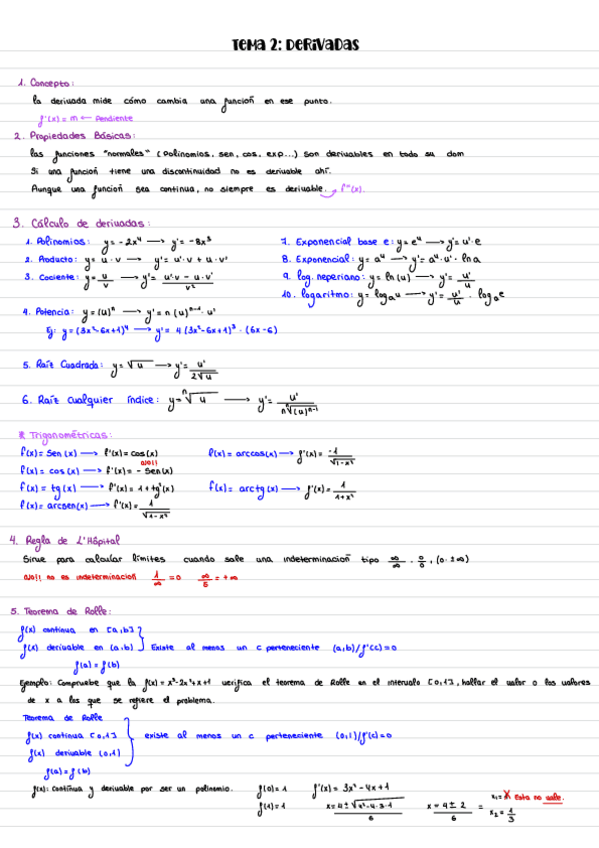 TEMA 2: DERIVADAS
1. Concepto:
la derivada mide cómo cambia una función en ese punto.
f'(x) = m ← Pendiente
2. Propiedades Básicas:
las funciones "normales" (Polinomios, sen, cos, exp...) son derivables en todo su dom
Si una función tiene una discontinuidad no es derivable ahí.
Aunque una función sea continua, no siempre es derivable. f''(x).
3. Cálculo de derivadas:
1. Polinomios: y = -2x⁴ → y' = -8x³
2. Producto: y = u · v → y' = u' · v + u · v'
3. Cociente: y = u/v → y' = (u' · v - u · v')/v²
4. Potencia: y = (u)ⁿ → y' = n (u)ⁿ⁻¹ · u'
Ej: y = (3x²-6x+1)⁴ → y' = 4 (3x²-6x+1)³ · (6x-6)
5. Raíz Cuadrada: y = √u → y' = u'/(2√u)
6. Raíz cualquier índice: y = ⁿ√u → y' = u'/(n ⁿ√(u)ⁿ⁻¹)
7. Exponencial base e: y = eᵘ → y' = u' · e
8. Exponencial: y = aᵘ → y' = aᵘ · u' · ln a
9. log. neperiano: y = ln (u) → y' = u'/u
10. logaritmo: y = logₐu → y' = u'/u · logₐe
* Trigonométricas:
f(x) = sen (x) → f'(x) = cos(x)
f(x) = cos (x) → f'(x) = - sen(x) OJO!!
f(x) = tg (x) → f'(x) = 1 + tg²(x)
f(x) = arcsen(x) → f'(x) = 1/√(1-x²)
f(x) = arccos(x) → f'(x) = -1/√(1-x²)
f(x) = arctg (x) → f'(x) = 1/(1+x²)
4. Regla de L'Hôpital
Sirve para calcular límites cuando sale una indeterminación tipo ∞/∞, 0/0, (0 · ±∞)
OJO!! no es indeterminación 1/∞ = 0 ∞/5 = +∞
5. Teorema de Rolle:
f(x) continua en [a,b]
f(x) derivable en (a,b) } Existe al menos un c perteneciente (a,b)/f'(c) = 0
f(a) = f(b)
Ejemplo: Compruebe que la f(x) = x³-2x²+x+1 verifica el teorema de Rolle en el intervalo [0,1], hallar el valor o los valores
de x a los que se refiere el problema.
Teorema de Rolle
f(x) continua [0,1] } existe al menos un c perteneciente (0,1)/f'(c) = 0
f(x) derivable (0,1)
f(a) = f(b)
f(x): Continua y derivable por ser un polinomio.
f(0) = 1
f(1) = 1
f'(x) = 3x² - 4x + 1
x = 4 ± √(
x = (4 ± 2)/6 =
x₁ = Esta no vale.
x₂ = 1/3